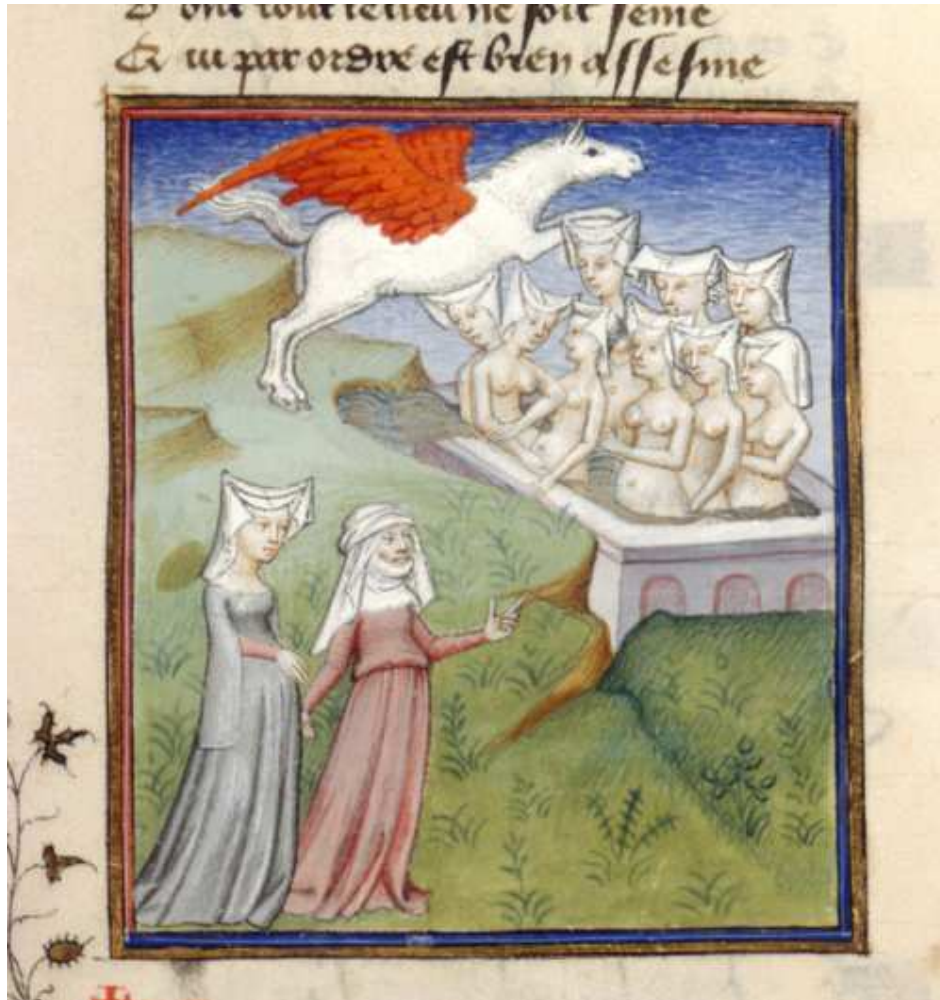 D ont tout le lieu ne soit seme
Q ui par ordre est bien assesme